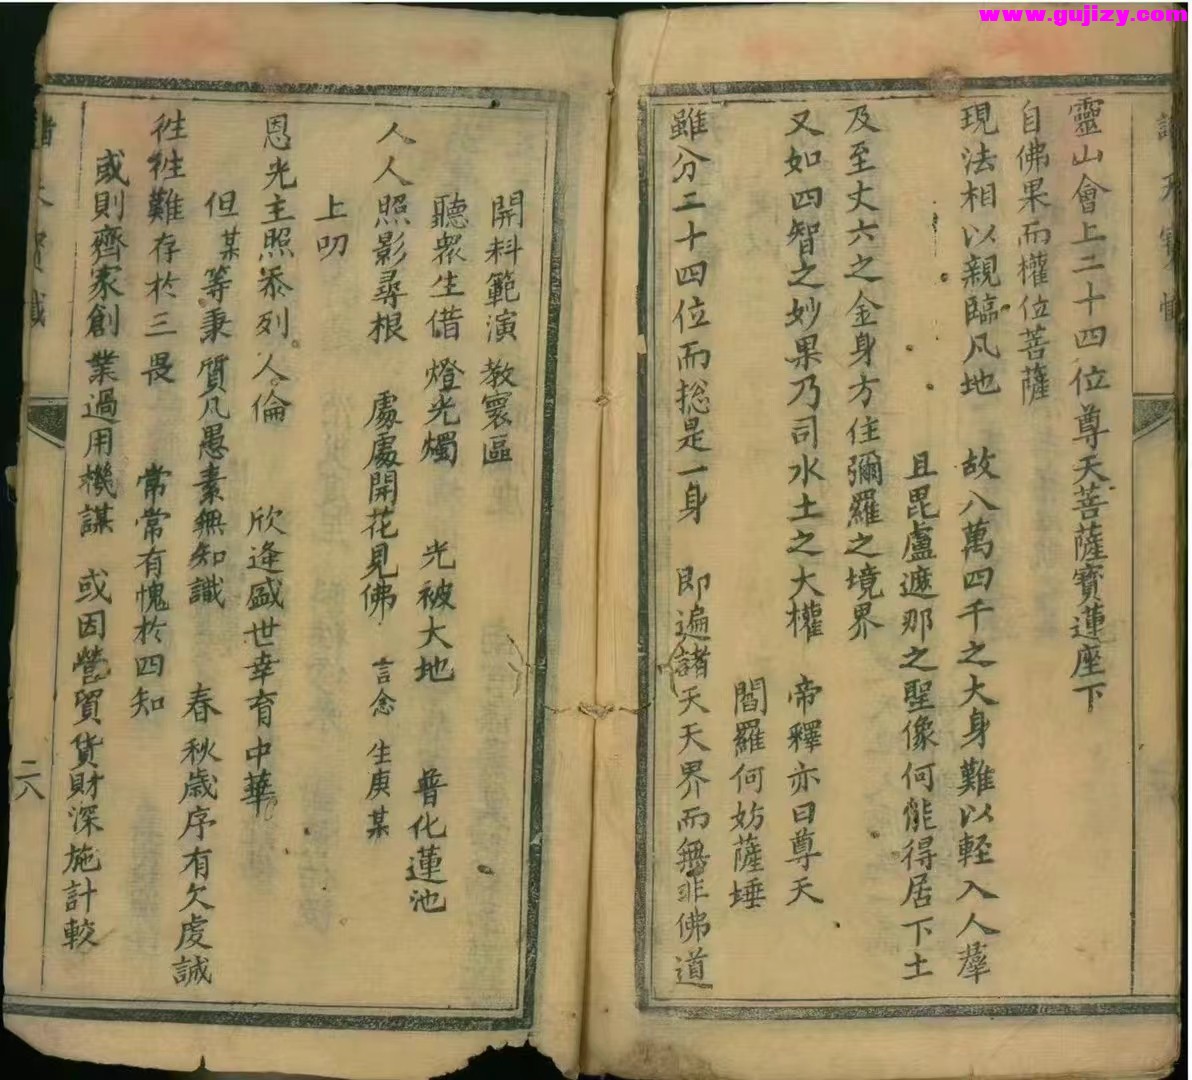 www.gujizy.com
諸天寶懺
靈山會上二十四位尊天菩薩寶蓮座下
自佛果而權位菩薩
現法相以親臨凡地 故八萬四千之大身難以輕入人羣
且毘盧遮那之聖像何能得居下土
及至丈六之金身方住彌羅之境界
又如四智之妙果乃司水土之大權 帝釋亦曰尊天
閻羅何妨薩埵
雖分二十四位而揔是一身 即遍諸天天界而無非佛道
開科範演教寰區
聽衆生借燈光燭 光被大地 普化蓮池
人人照影尋根 處處開花見佛 言念 生庚某
上叩
恩光主照忝列人倫 欣逢盛世幸育中華
但某等秉質凡愚素無知識 春秋歲序有欠虔誠
徃徃難存於三畏 常常有愧於四知
或則齊家創業過用機謀 或因營貿貨財深施計較
諸天寶懺
二六